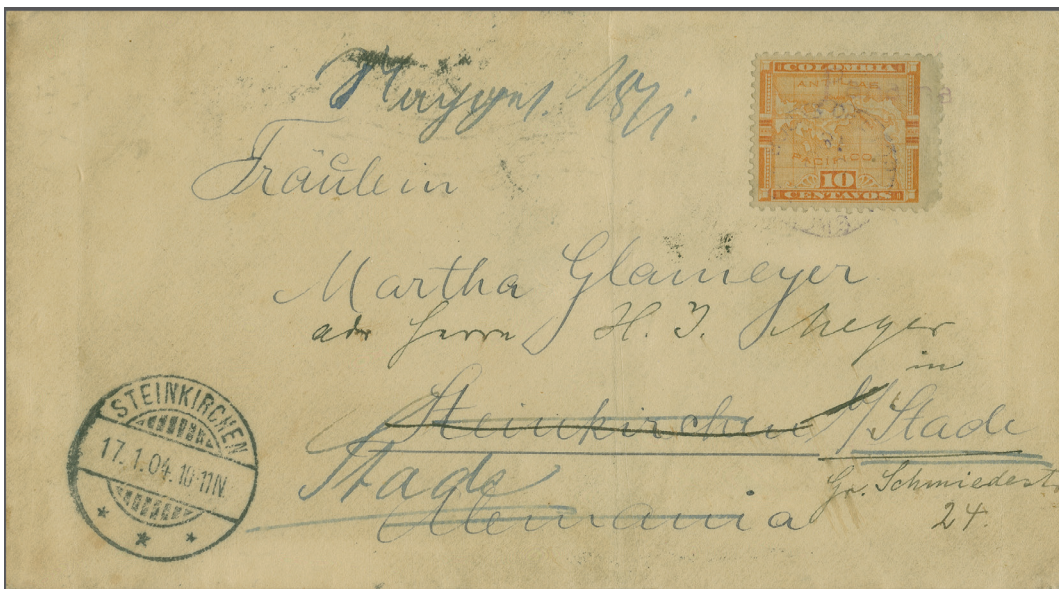 COLOMBIA
PACIFICO
10
CENTAVOS
Fräulein
Martha Glameyer
adr Herrn H. J. Meyer
in
Steinkirchen b/ Stade
Stade
Gr. Schmiedestr
24.
Alemania
STEINKIRCHEN
17.1.04. 10-11N.